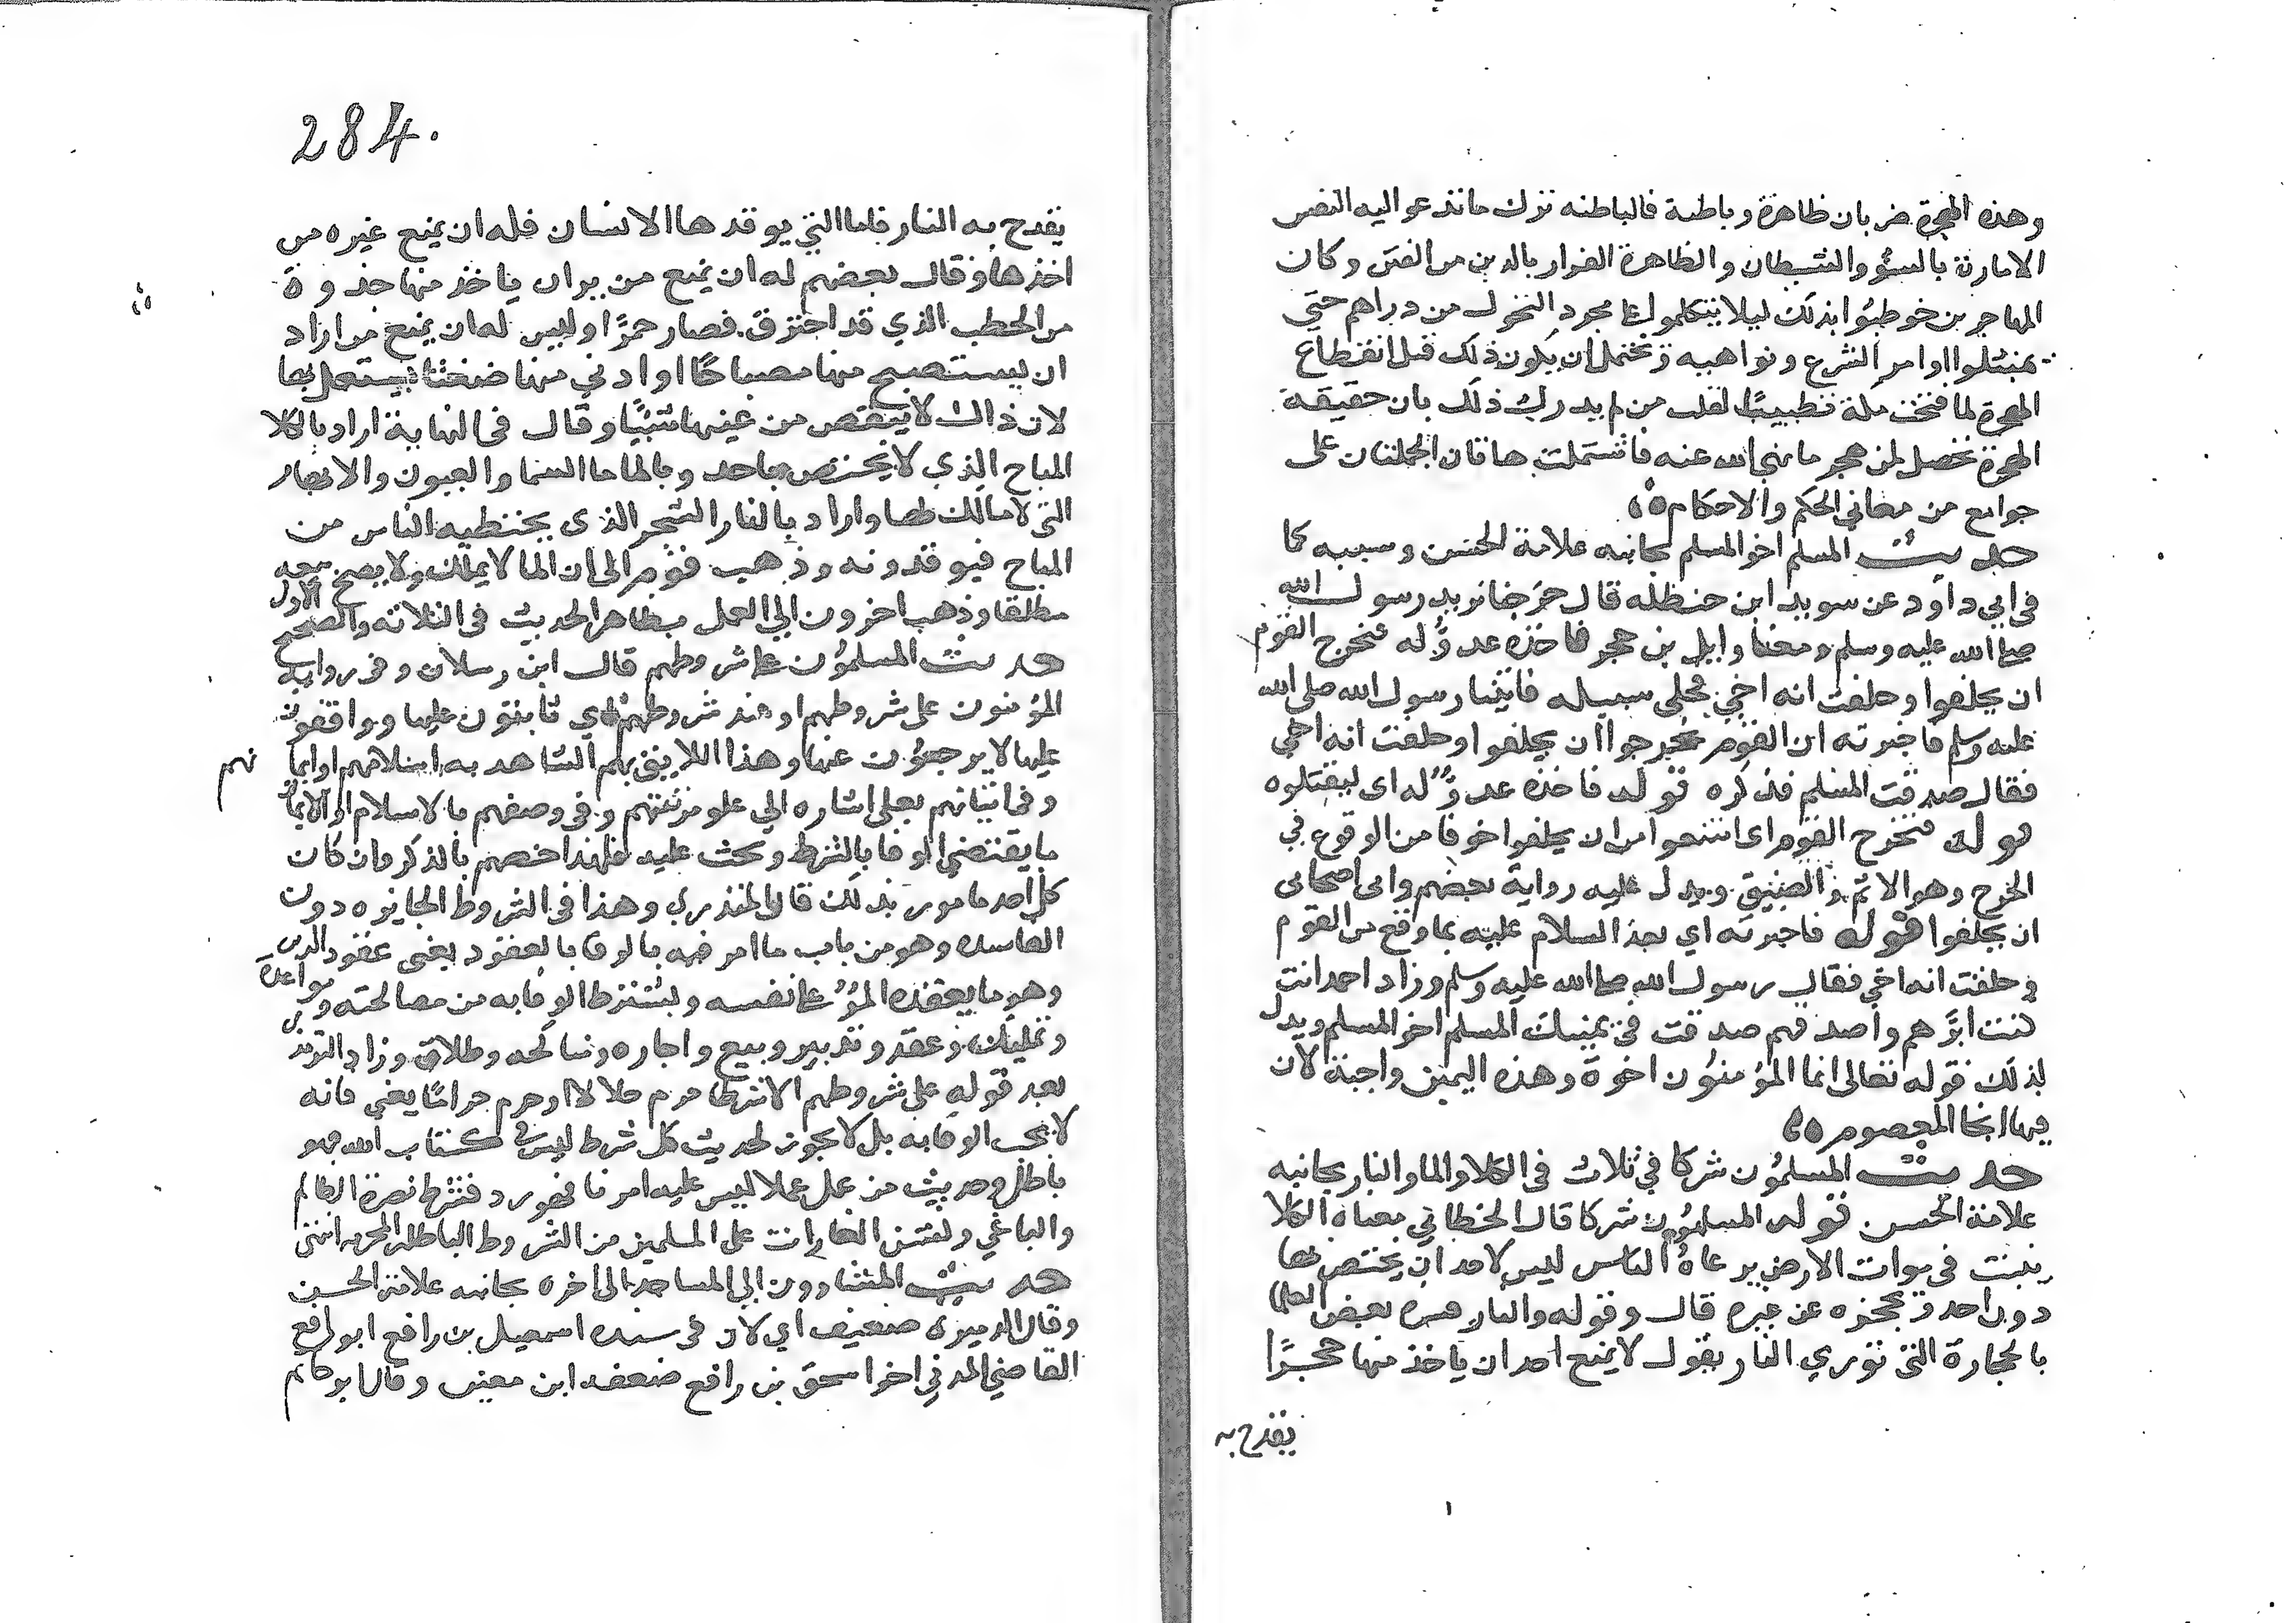 وهذه الهجرة ضربان ظاهرة وباطنة فالباطنه ترك ما تدعو اليه النفس
الامارة بالسؤ والشيطان والظاهرة الفرار بالدين من الفتن وكان
المهاجرين خوطبوا بذلك ليلا يتكلموا على مجرد التحول من دراهم حتى
يمتثلوا اوامر الشرع ونواهيه ويحتمل ان يكون ذلك قبل انقطاع
الهجرة لما فتحت مكة تطييبا لقلب من لم يدرك ذلك بان حقيقة
الهجرة تحصل لمن هجر ما نهى الله عنه فاشتملت هاتان الجملتان على
جوامع من معاني الحكم والاحكام
حديث المسلم اخو المسلم بجانبه علامة الحسن وسببه كما
في ابي داود عن سويد ابن حنظله قال خرجنا نريد رسول الله
صلى الله عليه وسلم ومعنا وايل بن حجر فاخذه عدو له فتحرج القوم
ان يحلفوا وحلفت انه اخي فخلى سبيله فاتينا رسول الله صلى الله
عليه وسلم فاخبرته ان القوم تحرجوا ان يحلفوا وحلفت انه اخي
فقال صدقت المسلم فذكره قوله فاخذه عدو له اى ليقتلوه
قوله فتحرج القوم اى امتنعوا من ان يحلفوا خوفا من الوقوع في
الحرج وهو الاثم والضيق ويدل عليه رواية بعضهم وابى اصحابى
ان يحلفوا قوله فاخبرته اي بعد السلام عليه بما وقع من القوم
وحلفت انه اخي فقال رسول الله صلى الله عليه وسلم وزاد احمد انت
كنت ابرهم واصدقهم صدقت في يمينك المسلم اخو المسلم ويدل
لذلك قوله تعالى انما المؤمنون اخوة وهذه اليمين واجبة لان
فيها انجا المعصوم
حديث المسلمون شركا في ثلاث في الكلا والما والنار بجانبه
علامة الحسن قوله المسلمون شركا قال الخطابي معناه الكلا
ينبت في موات الارض يرعاه الناس ليس لاحد ان يختص بها
دون احد ويحجزه عن غيره قال وقوله والنار فسره بعض العلما
بالحجارة التى توري النار يقول لا يمنع احد ان ياخذ منها حجرا
يقدح به
284.
يقدح به النار فاما التي يوقدها الانسان فله ان يمنع غيره من
اخذها وقال بعضهم له ان يمنع من يريد ان ياخذ منها جذوة
من الحطب الذي قد احترق فصار جمرا وليس له ان يمنع من اراد
ان يستصبح منها مصباحا او ادنى منها ضغثا يشتعل بها
لان ذلك لا ينقص من عينها شيئا وقال في النهاية اراد بالكلا
المباح الذي لا يختص باحد وبالما ما السما والعيون والانهار
التى لا مالك لها واراد بالنار الشجر الذى يحتطبه الناس من
المباح فيوقدونه وذهب قوم الى ان الما لا يملك ولا يصح بيعه
مطلقا وذهب اخرون الى العمل بظاهر الحديث في الثلاثه والصحيح الاول
حديث المسلمون على شروطهم قال ابن رسلان وفي رواية
المؤمنون على شروطهم او عند شروطهم اي ثابتون عليها وواقفون
عليها لا يرجعون عنها وهذا اللايق بهم الشاهد به اسلامهم او ايمانهم
وفي اتيانهم بعلى اشاره الى علو مرتبتهم وفي وصفهم بالاسلام او الايمان
ما يقتضي الوفا بالشرط ويحث عليه فلهذا خصهم بالذكر وان كان
كل احد مامور بذلك قال المنذري وهذا في الشروط الجايزه دون
الفاسده وهو من باب ما امر فيه بالوفا بالعقود يعنى عقود الدين
وهو ما يعقده المرؤ على نفسه ويشترط الوفا به من مصالحته ومواعدة
وتمليك وعقد وتدبير وبيع واجاره ومناكحه وطلاق وزاد الترمذي
بعد قوله على شروطهم الا شرطا حرم حلالا او حرم حراما يعني فانه
لا يجب الوفا به بل لا يجوز لحديث كل شرط ليس في كتاب الله فهو
باطل وحديث من عمل عملا ليس عليه امرنا فهو رد فشرط نصرة الظالم
والباغي وشن الغارات على المسلمين من الشروط الباطله المحرمه انتهى
حديث المشاوون الى المساجد الى اخره بجانبه علامة الحسن
وقال الدميرى ضعيف اي لان في سنده اسمعيل بن رافع ابو رافع
القاضي المدني اخو اسحق بن رافع ضعفه ابن معين وقال ابو حاتم